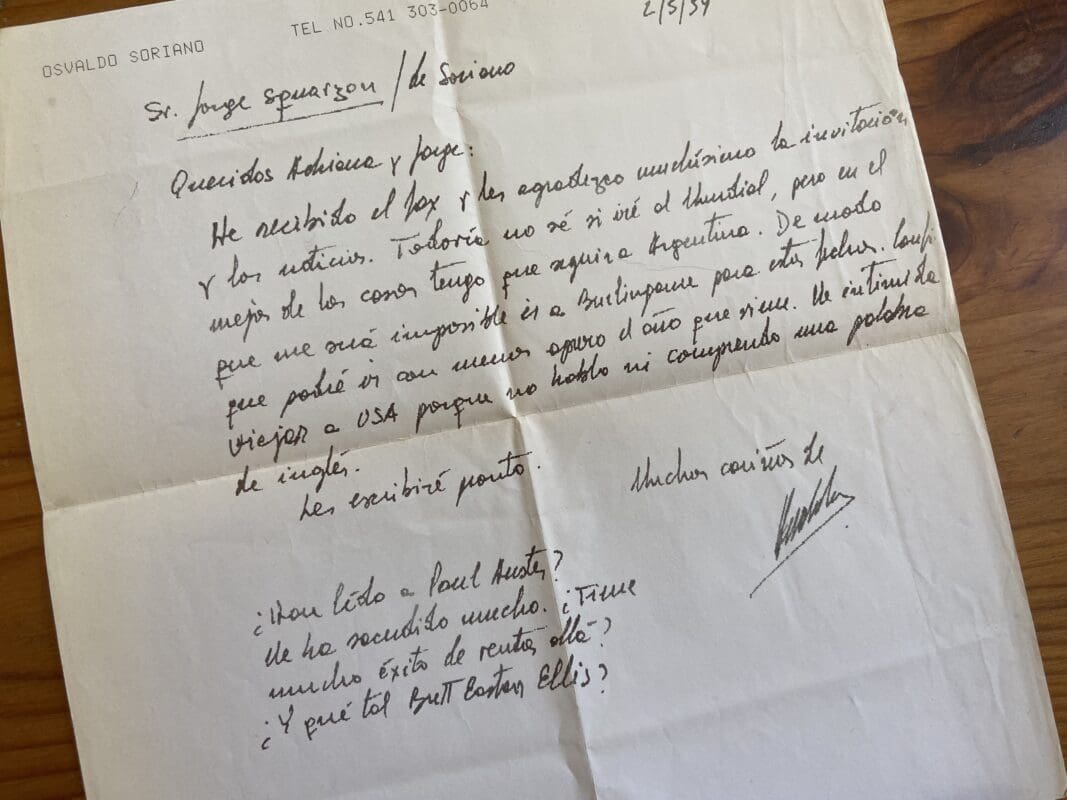 OSVALDO SORIANO
TEL NO.541 303-0064
2/5/94
Sr. Jorge Squarzon / de Soriano
Queridos Adriana y Jorge:
He recibido el fax y les agradezco muchísimo la invitación
y las noticias. Todavía no sé si iré al Mundial, pero en el
mejor de los casos tengo que seguir a Argentina. De modo
que me será imposible ir a Burlingame para estas fechas. Confío
que podré ir con menos apuro el año que viene. Me intimida
viajar a USA porque no hablo ni comprendo una palabra
de inglés.
Les escribiré pronto.
Muchos cariños de
Osvaldo
¿Han leído a Paul Auster?
Me ha sacudido mucho. ¿Tiene
mucho éxito de ventas allá?
¿Y qué tal Brett Easton Ellis?